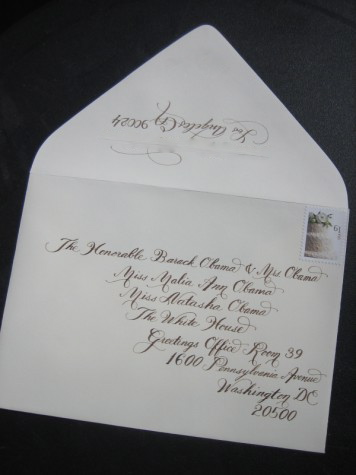 Los Angeles CA 90024
The Honorable Barack Obama & Mrs Obama
Miss Malia Ann Obama
Miss Natasha Obama
The White House
Greetings Office Room 39
1600 Pennsylvania Avenue
Washington DC
20500